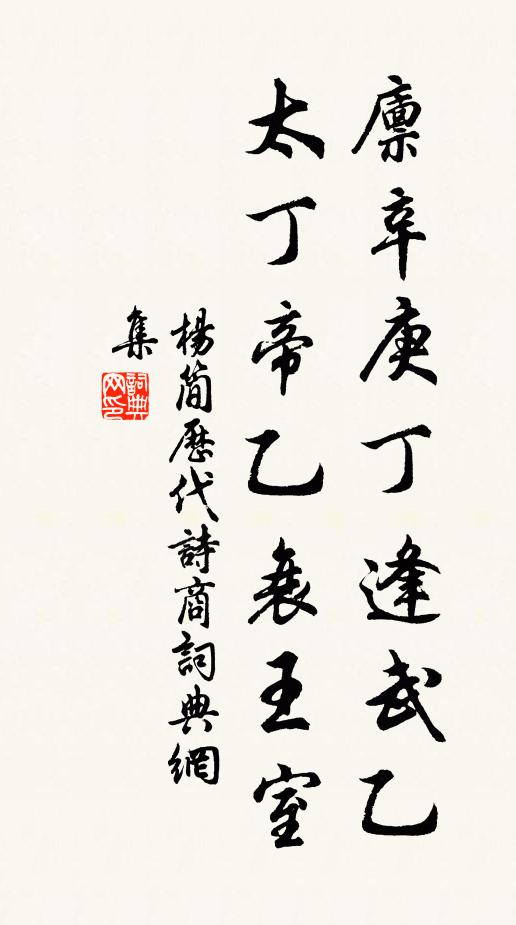 廩辛庚丁逢武乙
太丁帝乙衰王室
楊簡歷代詩商詞典網
集
詞典
网印